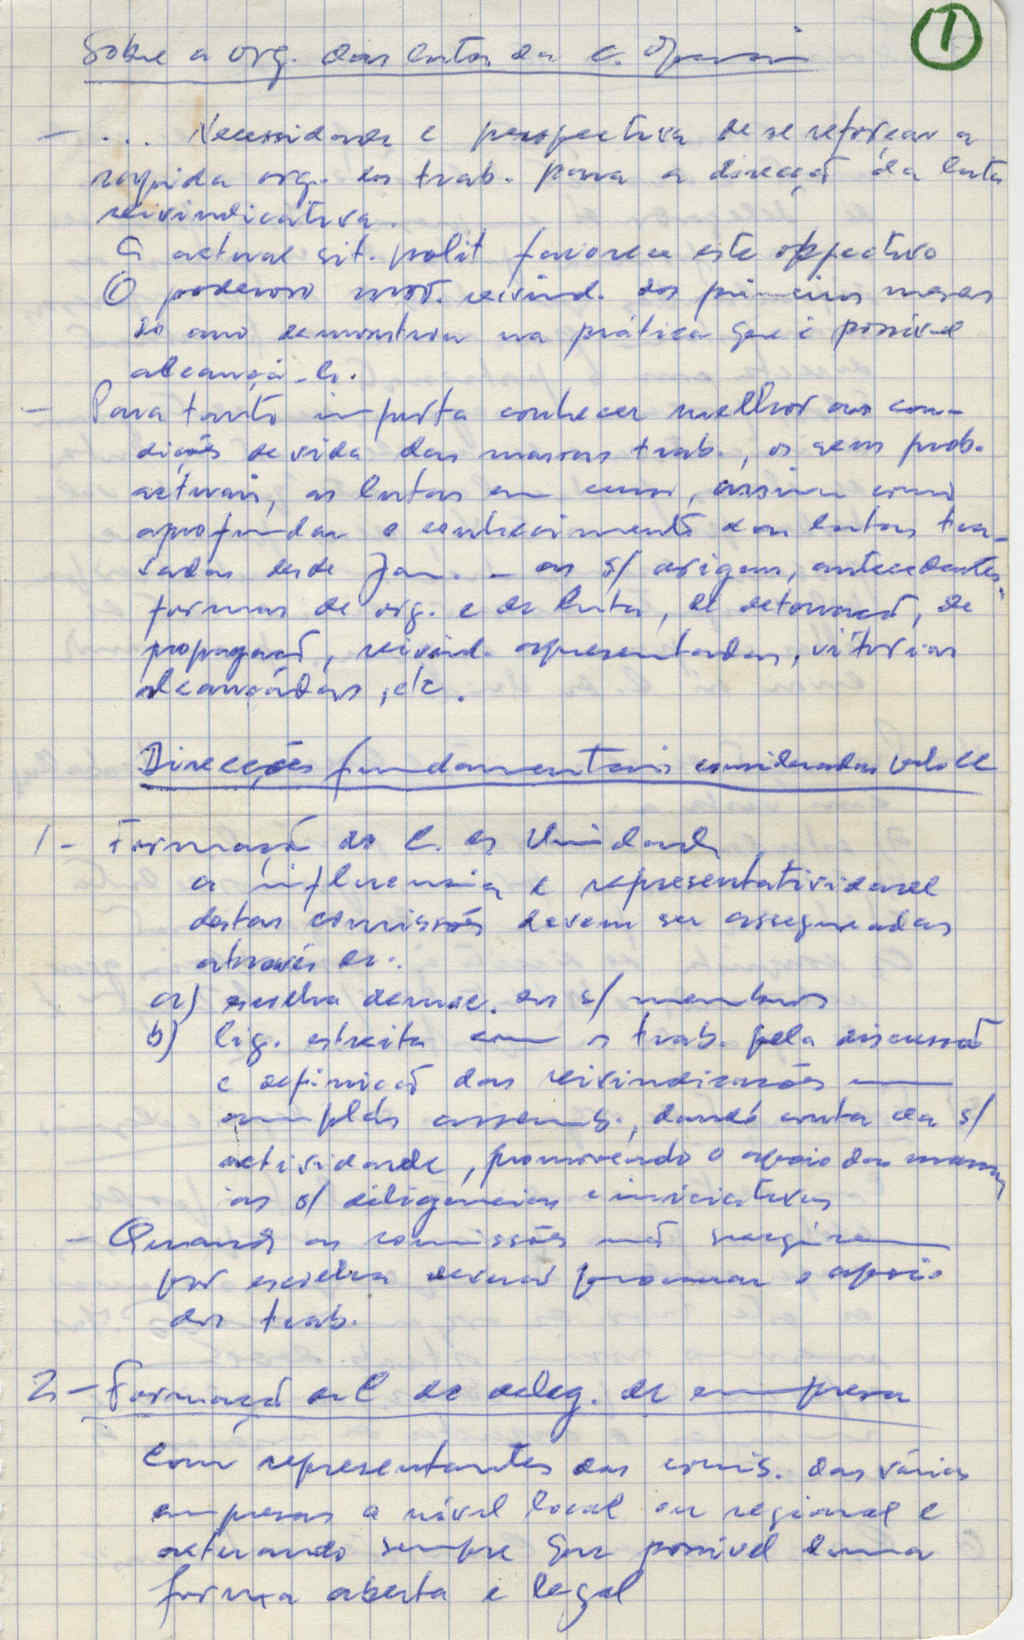 1
Sobre a org. das lutas da C. Operária
- ... Necessidade e perspectiva de se reforçar a
rápida org. dos trab. para a direcçã da luta
reivindicativa.
A actual sit. polit favorece este objectivo
O poderoso mov. reivind. dos primeiros meses
do ano demonstrou na prática que é possível
alcançá-lo.
- Para tanto importa conhecer melhor as con-
dições de vida das massas trab., os seus prob.
actuais, as lutas em curso, assim como
aprofundar o conhecimento das lutas tra-
vadas desde Jan. - as s/ origens, antecedentes,
formas de org. e de luta, de detonaçã, de
propagaçã, reivind. apresentadas, vitórias
alcançadas, etc.
Direcções fundamentais consideradas pelo CC
1 - Formaçã de C. de Unidade
a influencia e representatividade
destas comissões devem ser asseguradas
através de:
a) escolha democ. dos s/ membros
b) lig. estreita com os trab. pela discussã
e definiçã das reivindicações em
amplas assemb., dando conta da s/
actividade, promovendo o apoio das massas
às s/ diligências e iniciativas
- Quando as comissões nã surgirem
por escolha deverã procurar o apoio
dos trab.
2 - Formaçã de C de deleg. de empresa
Com representantes das comis. das várias
empresas a nível local ou regional e
actuando sempre que possível duma
forma aberta e legal